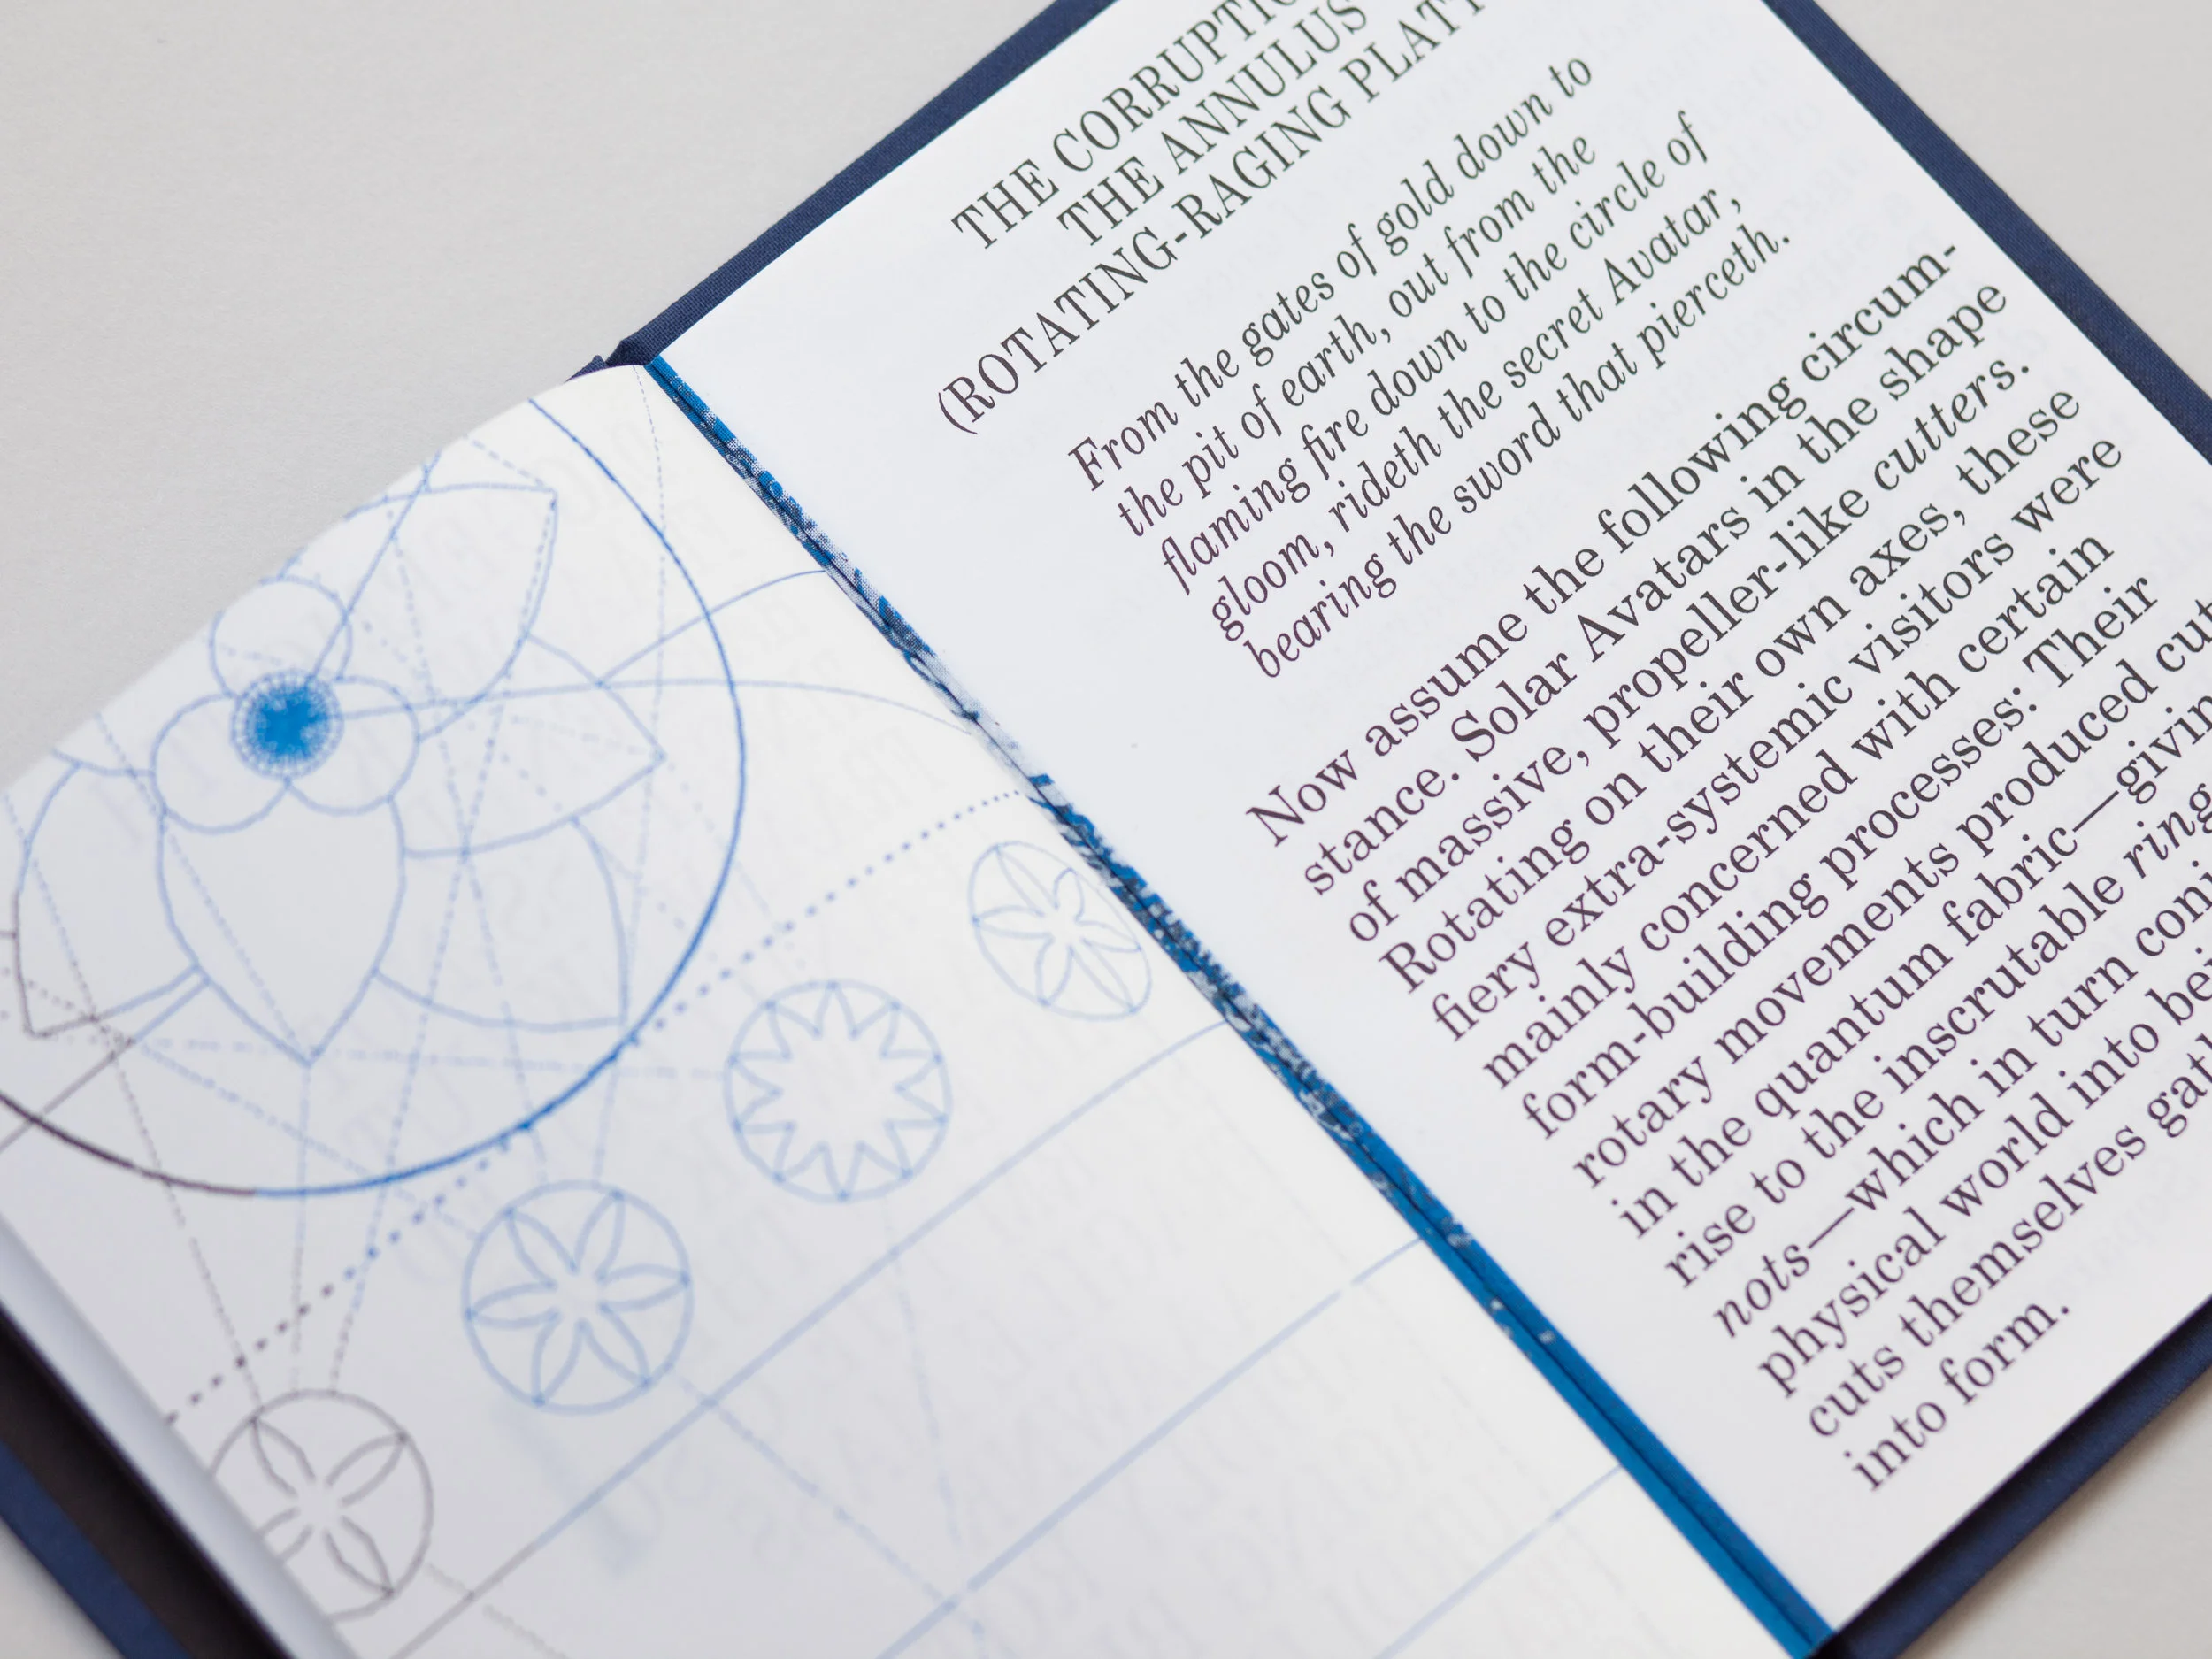 THE
THE ANNULUS
(ROTATING-RAGING
From the gates of gold down to
the pit of earth, out from the
flaming fire down to the circle of
gloom, rideth the secret Avatar,
bearing the sword that pierceth.
Now assume the following circum-
stance. Solar Avatars in the shape
of massive, propeller-like cutters.
Rotating on their own axes, these
fiery extra-systemic visitors were
mainly concerned with certain
form-building processes: Their
rotary movements produced
in the quantum fabric—
rise to the inscrutable
nots—which in turn
physical world into
cuts themselves
into form.